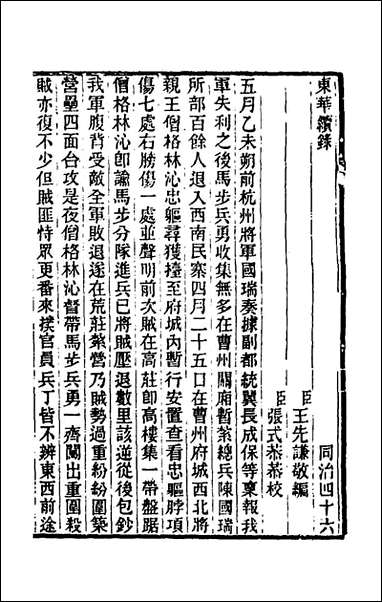 東華續錄　同治四十六
臣王先謙敬編
臣張式恭恭校
五月乙未朔前杭州將軍國瑞奏據副都統翼長成保等稟報我
軍失利之後馬步兵勇收集無多在曹州關廂暫紮總兵陳國瑞
所部百餘人退入西南民寨四月二十五日在曹州府城西北將
親王僧格林沁忠軀尋獲擡至府城內暫行安置查看忠軀脖項
傷七處右膀傷一處並聲明前次賊在高莊卽高樓集一帶盤踞
僧格林沁卽諭馬步分隊進兵已將賊壓退數里該逆從後包鈔
我軍腹背受敵全軍敗退遂在荒莊紮營乃賊勢過重紛紛圍築
營壘四面合攻是夜僧格林沁督帶馬步兵勇一齊闖出重圍殺
賊亦復不少但賊匪恃眾更番來撲官員兵丁皆不辨東西前途